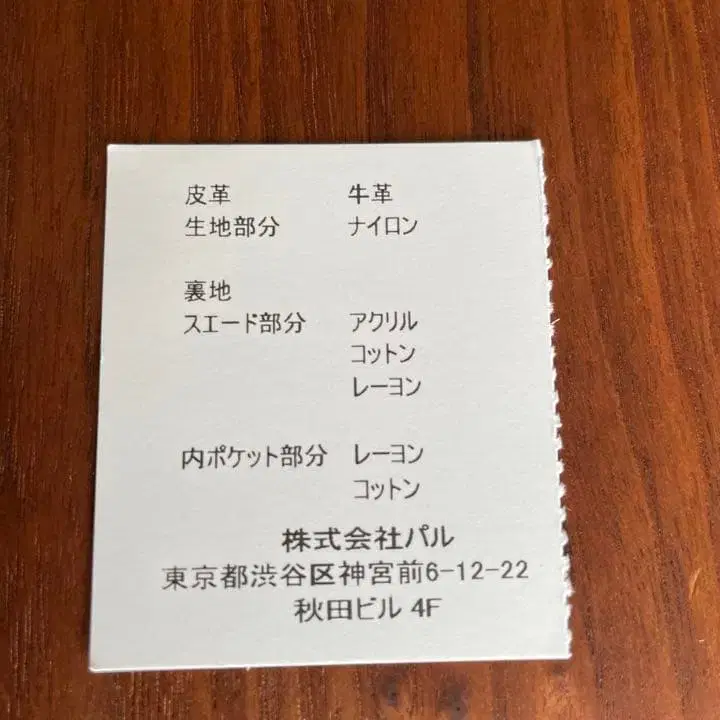 皮革 牛革
生地部分 ナイロン
裏地
スエード部分 アクリル
コットン
レーヨン
内ポケット部分 レーヨン
コットン
株式会社パル
東京都渋谷区神宮前6-12-22
秋田ビル 4F